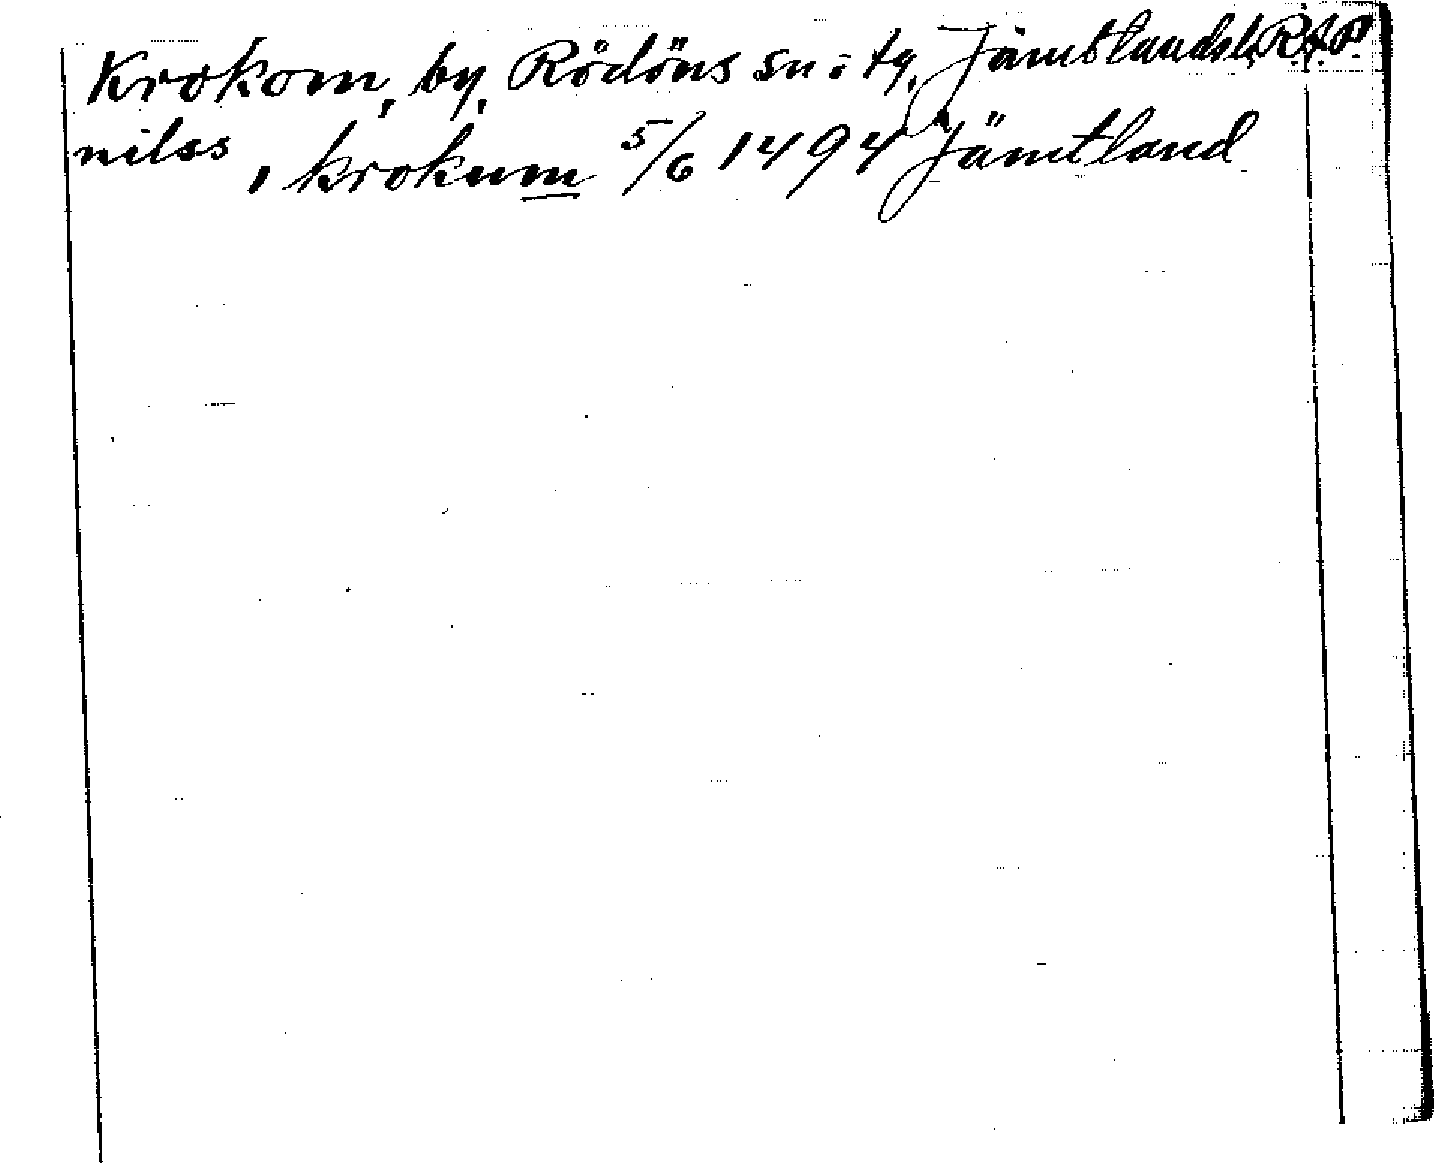 Krokom, by, Rödöns sn o tg, Jämtlands l. RAP
nilss , krokum 5/6 1494 Jämtland